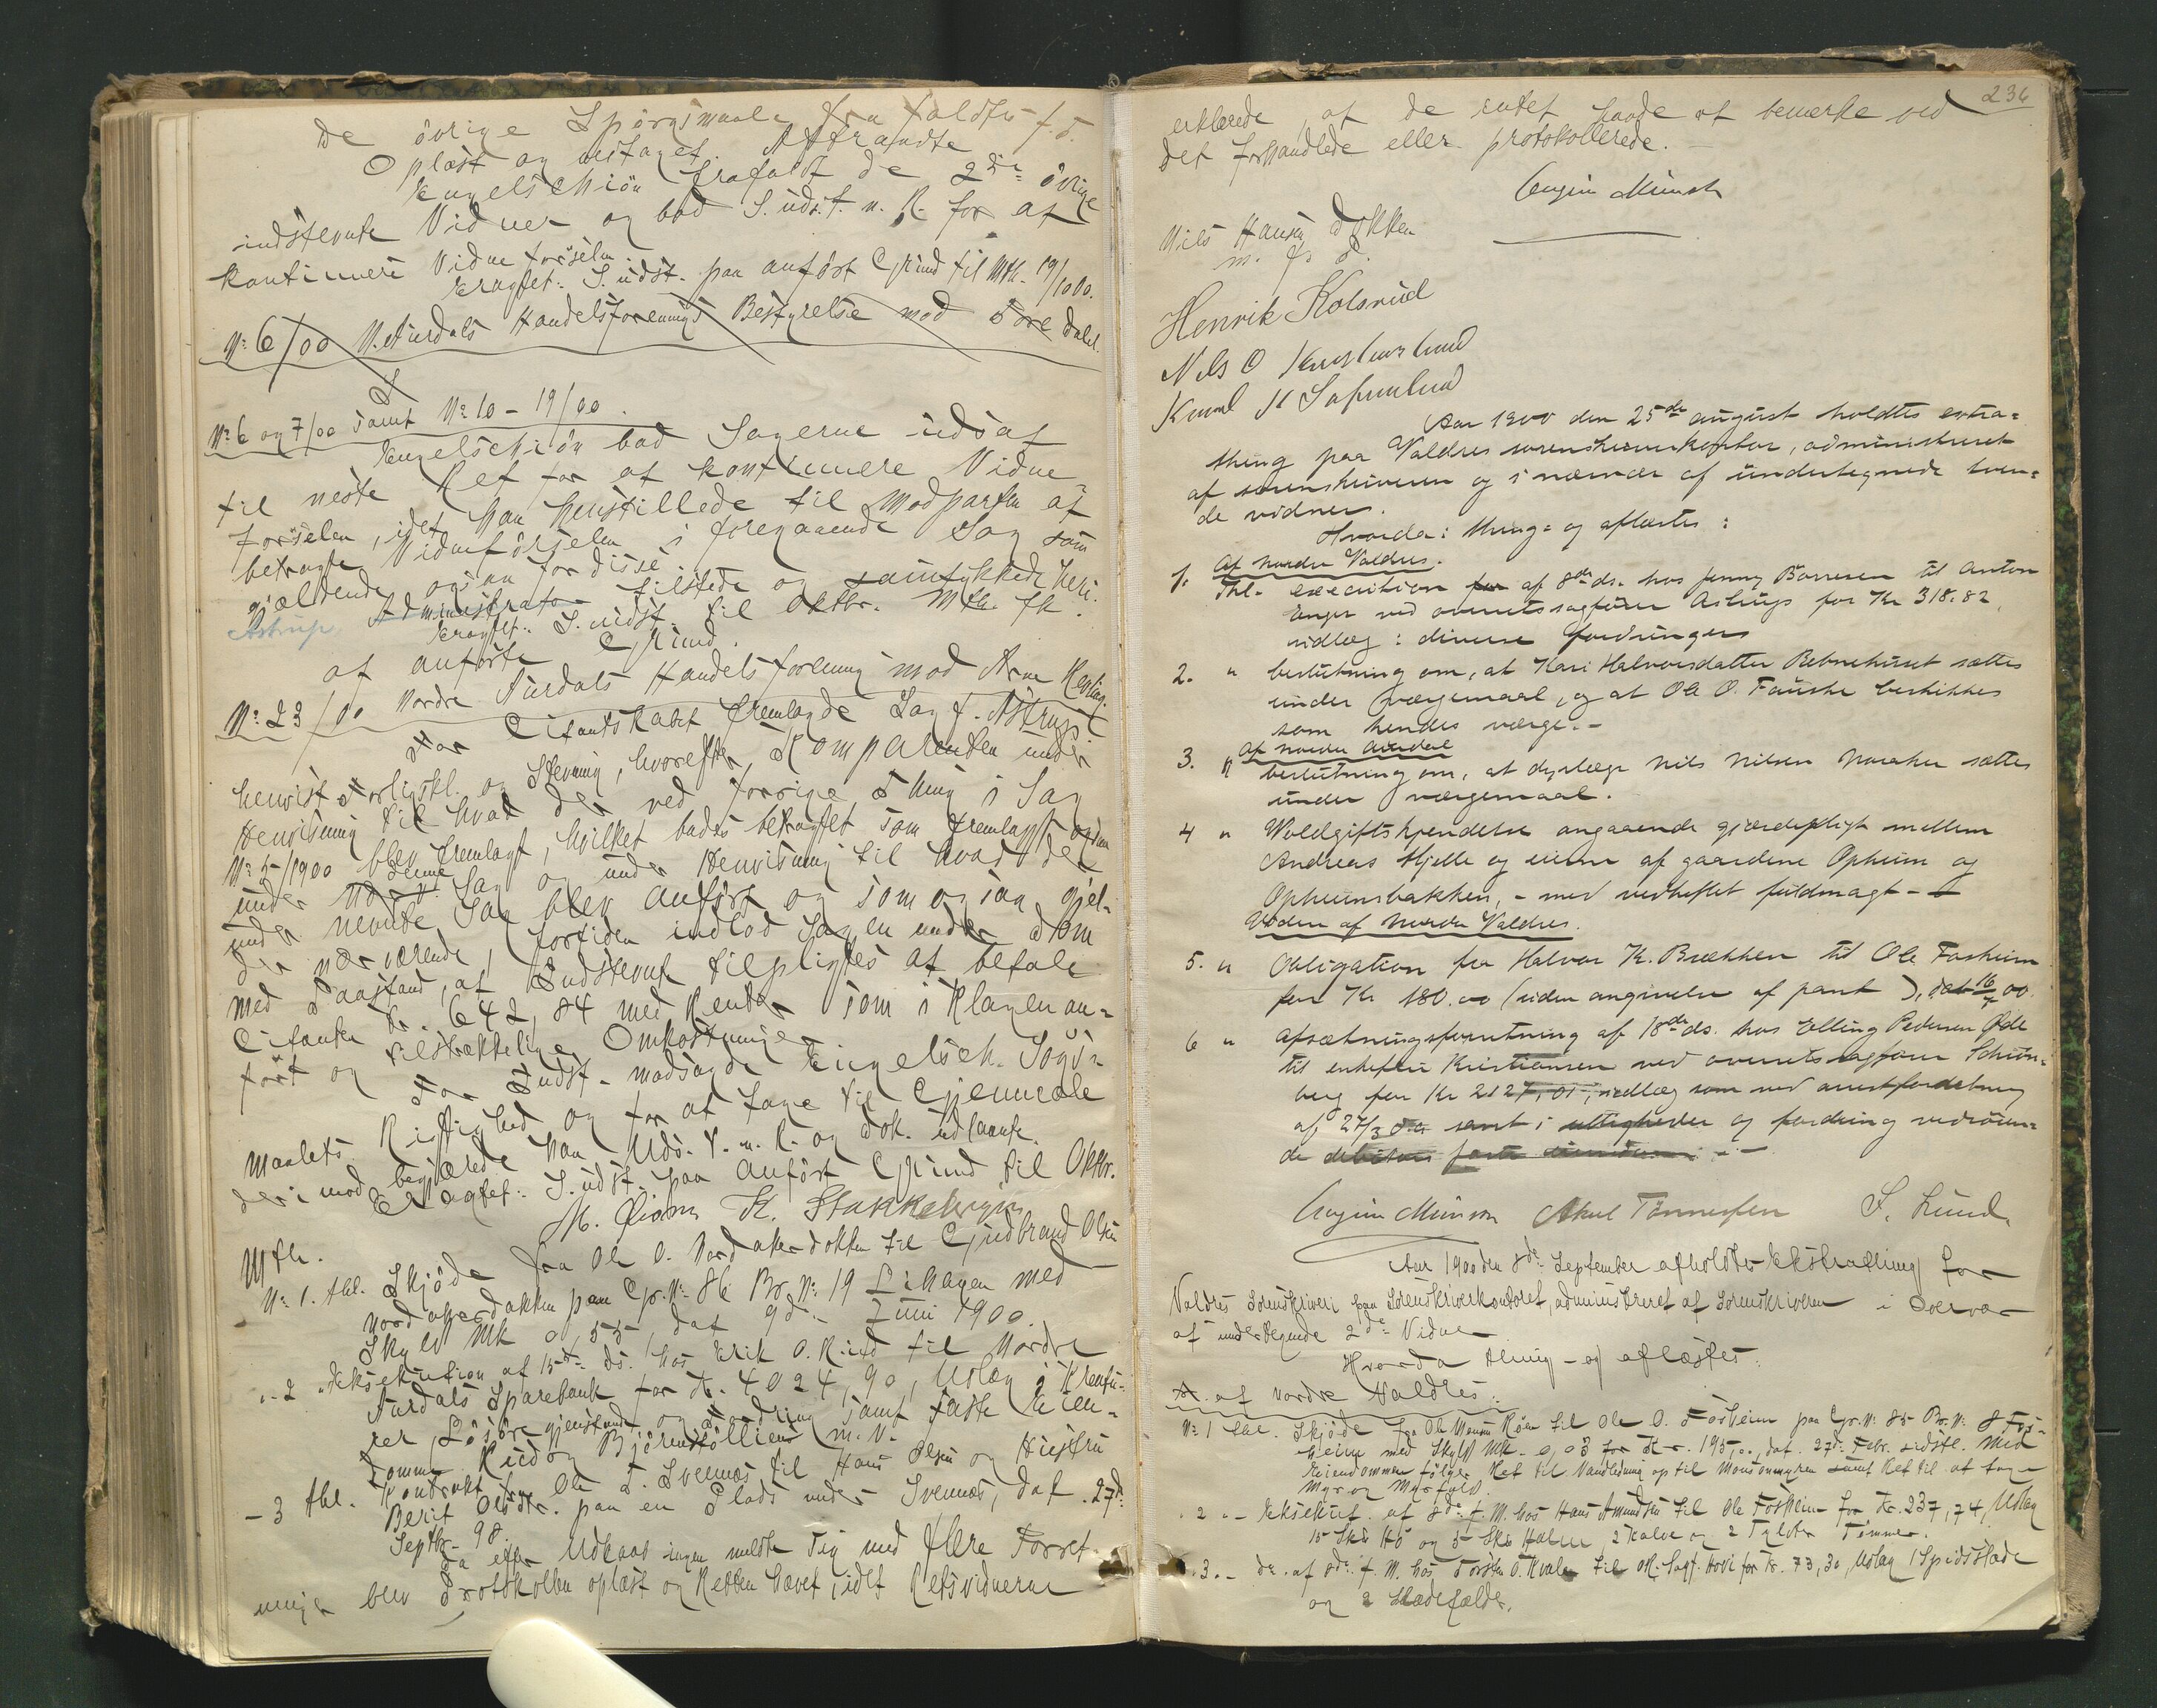 De övrige Spörgsmaale fra faldtes f. ö.
Oplæst og vedtaget. Aftraadte
Engelschiön frafaldt de 2de övrige
indstevnte Vidner og bad S. uds. t. n. R. for at
kontinuere Vidneförselen
Eragtet: S. udst. paa anfört Grund til Mth. 19/10 00.
No 6/00 N. Aurdals Handelsforenings Bestyrelse mod Tore Dahl.
No 6 og 7/00 samt No 10 - 19/00.
Engelschiön bad Sagerne udsat
til neste Ret for at kontinuere Vidne-
förselen, idet han henstillede til Modparten at
betragte Vidneförselen i foregaaende Sag som
gjældende ogsaa for disse.
Astrup Administrator tilstede og samtykkede heri.
Eragtet: S. udst. til Oktbr. Mth. fk.
af anförte Grund.
No 23/00 Nordre Aurdals Handelsforening mod Arne
For Citantskabet fremlagde Sagf. Astrup
henvist Forligskl. og Stevning, hvorefter Komparenten under
Henvisning til hvad der ved forrige Thing i Sag
No 5/1900 blev fremlagt, hvilket bades betragtet som fremlagt ogsaa
under denne Sag og under Henvisning til hvad der
under nevnte Sag blev anfört og som ogsaa gjel-
der nærværende, fortiden indlod Sagen under Dom
med Paastand, at Indstevnte tilpligtes at betale
Citanten Kr. 642,84 med Renter som i Klagen an-
fört og tilstrækkelige Omkostninger
For Indst. modsagde Engelsch. Sögs-
maalets Rigtighed og for at tage til Gjenmæle
derimod begjærede han Uds. t. n. R. og Dok. udlaante.
Eragtet: S. udst. paa anfört Grund til Oktbr.
Mth.
No 1. thl. Skjöde fra Ole O. Nordakerdokken til Gudbrand Olsen
Nordakerdokken paa Gr. No 86 Br. No 19 Lihagen med
Skyld Mk 0,55, dat 9de Juni 1900.
" 2 " Eksekution af 15de ds. hos Erik O. Ruud til Nordre
Aurdals Sparebank for Kr. 4024,90, Udlæg i Kreatu-
rer, Lösöregjenstande og Fordring samt faste Eien-
domme Ruud og Björnstöllien m.v.
- 3 thl. Kontrakt fra Ole T. Svennes til Hans Olsen og Hustru
Berit Olsdtr. paa en Plads under Svennes, dat. 27de
Septbr. 98.
Da efter Udraab ingen meldte sig med flere Forret-
ninger blev Protokollen oplæst og Retten hævet, idet Retsvidnerne
236
erklærede, at de intet havde at bemerke ved
det forhandlede eller protokollerede. -
Nils Hansen Dokken
m. f. P.
Henrik Kolsrud
Nils O
Knud K
Aar 1900 den 25de august holdtes extra-
thing paa Valdres sorenskriverkontor, administreret
af sorenskriveren og i nærvær af undertegnede tven-
de vidner.
Hvorda: thing- og aflæstes:
Af Nordre Valdres.
1. Thl. execution for af 8de ds. hos Jenny Börresen til Anton
Enger ved overretssagförer Astrup for Kr 318.82,
udlæg: diverse fordringer
2. " beslutning om, at Kari Halvorsdatter Rebnehuset sættes
under værgemaal, og at Ole O. Fauske beskikkes
som hendes værge. -
af nordre aurdal
3. " beslutning om, at dyrlæge Nils Nilsen Noraker sættes
under værgemaal.
4 " Voldgiftskjendelse angaaende gjærdepligt mellem
Andreas Hjelle og eierne af gaardene Opheim og
Opheimsbakken, - med vedheftet fuldmagt -
Videre af Nordre Valdres.
5. " Obligation fra Halvor K. Brækken til Ole Fosheim
for Kr 180.00 (uden angivelse af pant), dat 16/7 00.
6 " Afsætningsforretning af 18de ds. hos Elling Pedersen Öde
til enkefru Kristiansen ved overretssagförer Schiön-
berg for Kr 2127,01, udlæg som ved arrestforretning
af 27/3 d.a. samt i uttigheder og fordring vedrören-
de debitors faste eiendom. -
Axel Tönnesen S. Lund.
Aar 1900 den 8de September afholdtes Ekstrathing for
Valdres Sorenskriveri paa Sorenskriverkontoret, administreret af Sorenskriveren i Overvær
af undertegnede 2de Vidner
Hvorda thing- og aflæstes.
A. af Nordre Valdres.
No 1 thl. Skjöde fra Ole Monsen Röen til Ole O. Fosheim paa Gr. No 85 Br. No 8 Fos-
heim med Skyld Mk. 0,03 for Kr. 195,00, dat. 27de Febr. sidstl. Med
Eiendommen fölger Ret til Vandledning op til Monsemyren samt Ret til at tage
Myr og Myrfyld.
" 2 " - Eksekut. af 8de f. M. hos Hans Amundsen til Ole Fosheim for Kr. 237,74, Udlæg
15 Skp Hö og 5 Skp Halm, 2 Kalve og 2 Tylvter Tömmer.
" 3. - do. af 8de f. M. hos Torsten O. Kvale til Ok. Sagf. Hovi for Kr. 73,30, Udlæg 1 Spidsslæde
og 2 Slædefælder.